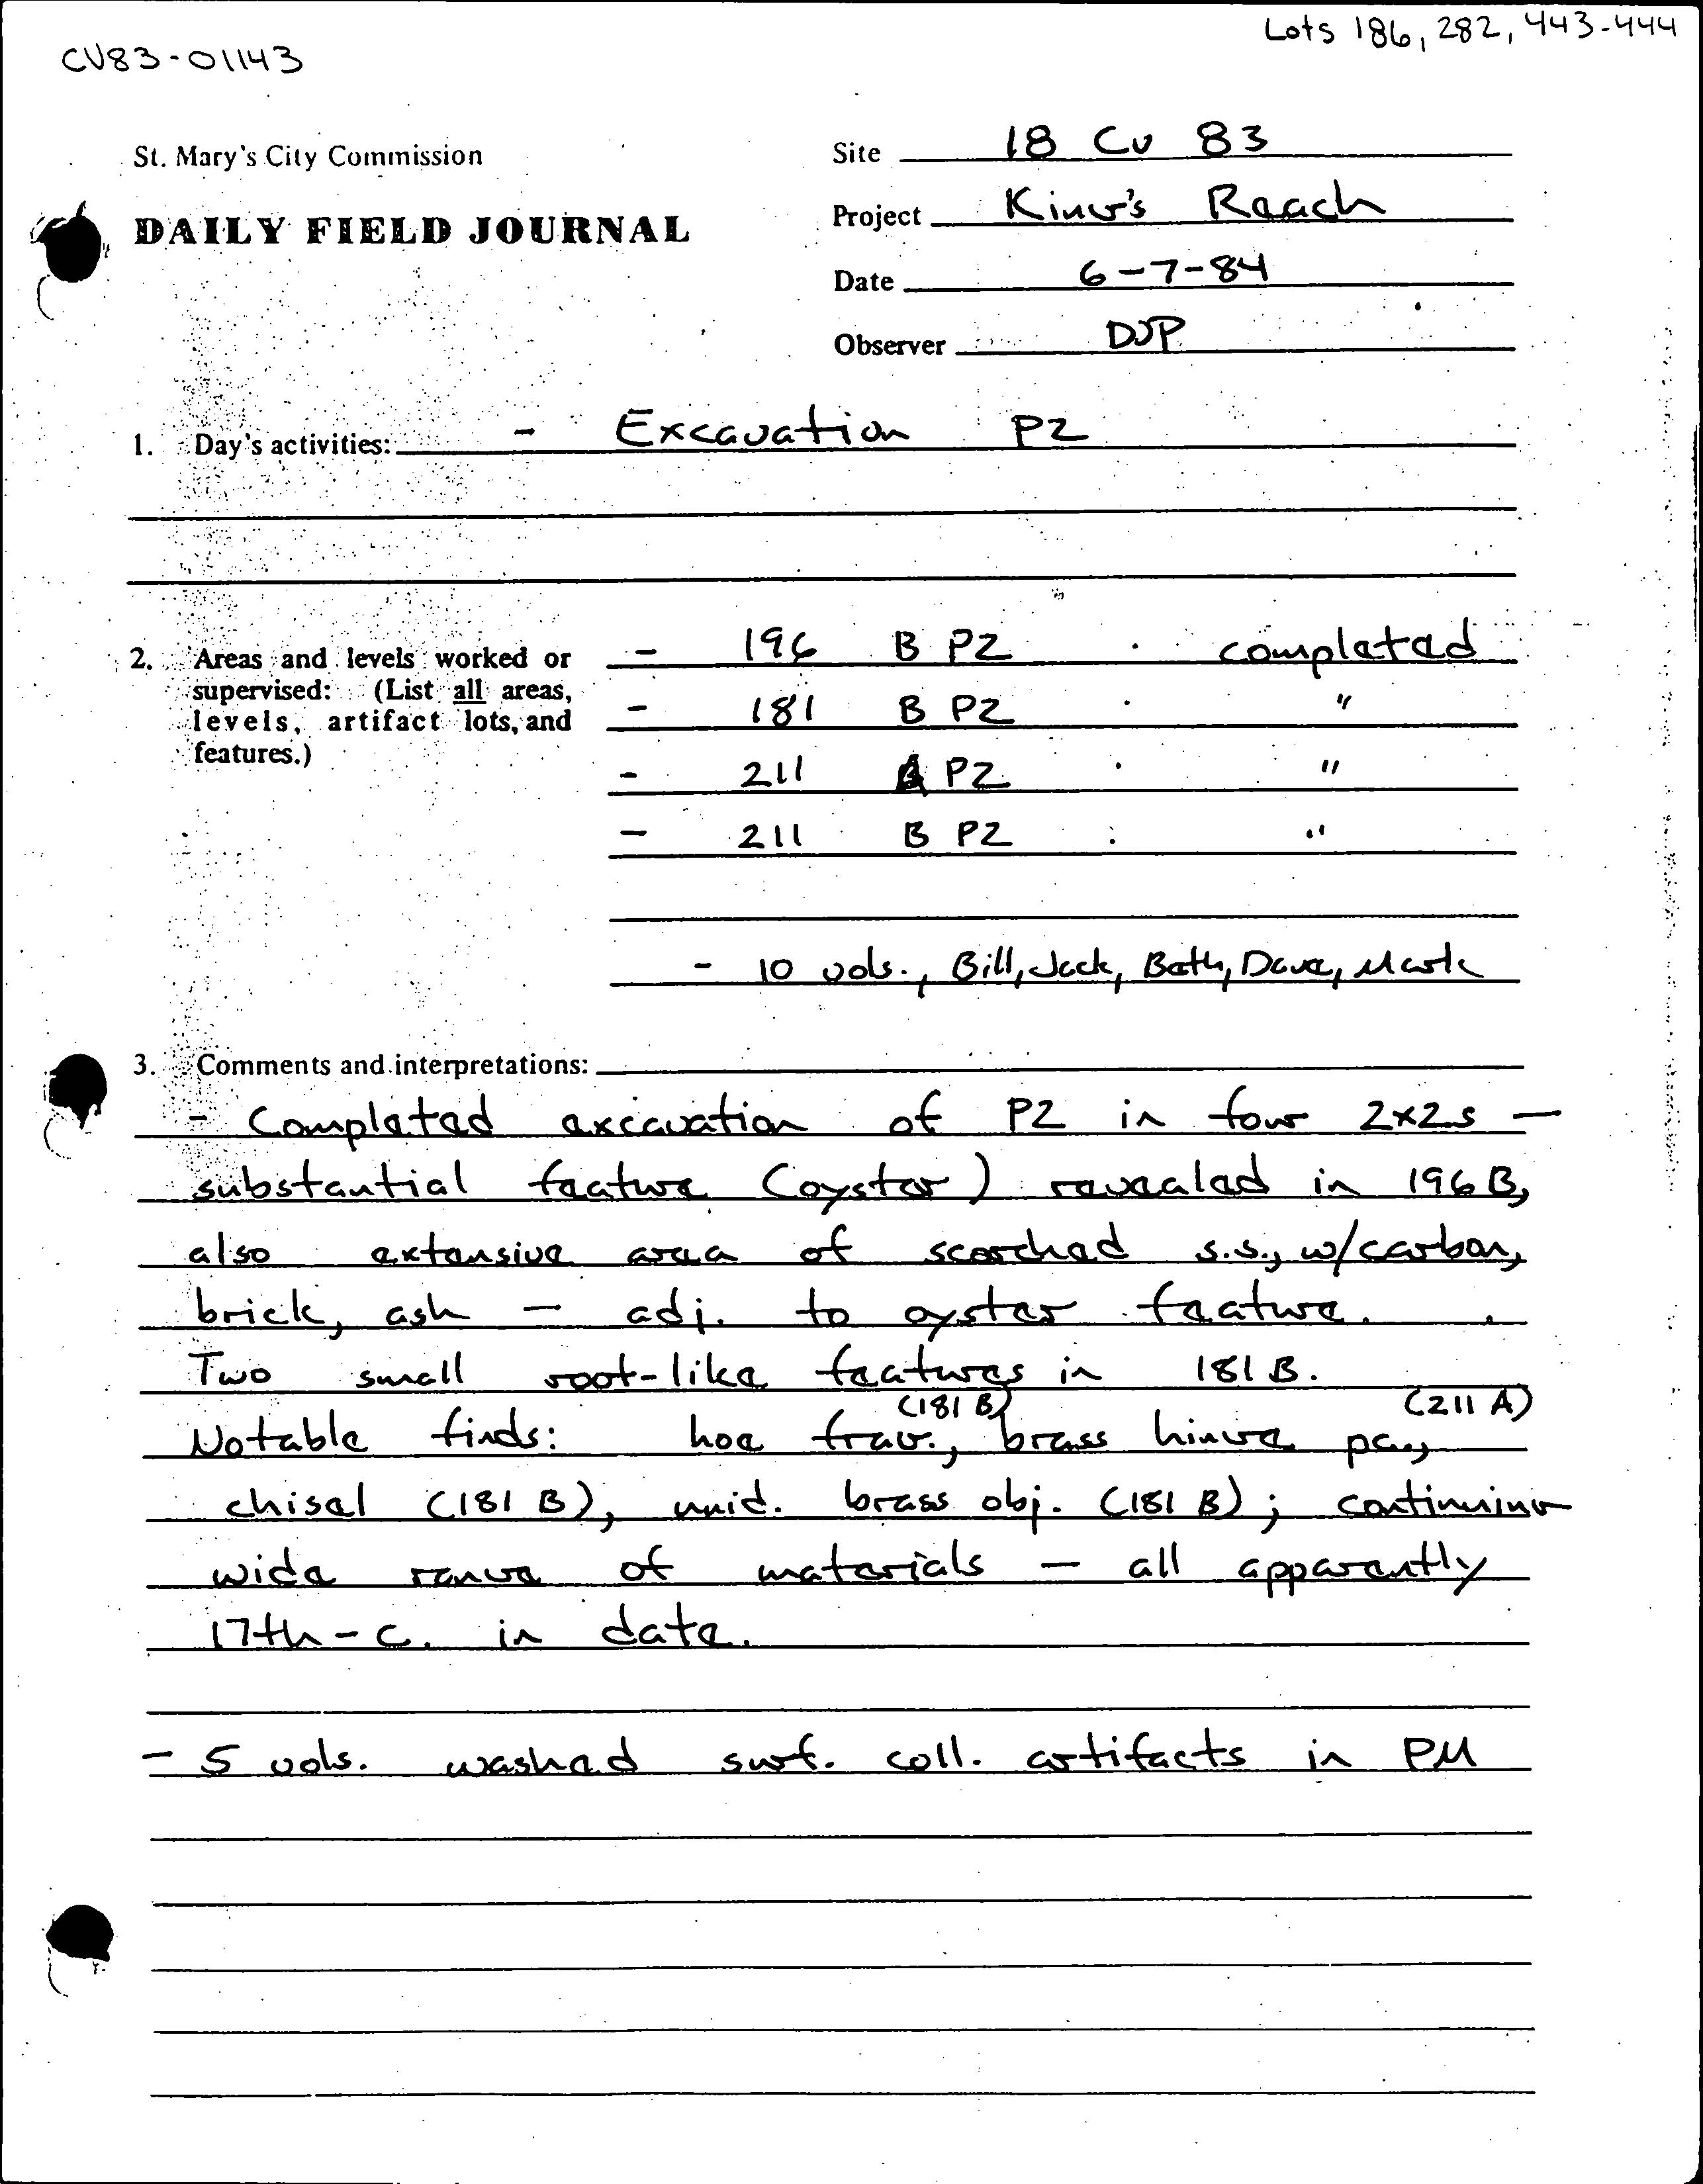 Lots 186, 282, 443-444
CV83-01143
St. Mary's City Commission
DAILY FIELD JOURNAL
Site 18 Cv 83
Project King's Reach
Date 6-7-84
Observer DJP
1. Day's activities: - Excavation PZ
2. Areas and levels worked or supervised: (List all areas, levels, artifact lots, and features.)
- 196 B PZ completed
- 181 B PZ "
- 211 A PZ "
- 211 B PZ "
- 10 vols., Bill, Jack, Beth, Dave, Mark
3. Comments and interpretations:
- Completed excavation of PZ in four 2x2s -
substantial feature (oyster) revealed in 196 B,
also extensive area of scorched s.s., w/carbon,
brick, ash - adj. to oyster feature.
Two small root-like features in 181 B.
(181 B) (211 A)
Notable finds: hoe frag., brass hinge pc.,
chisel (181 B), unid. brass obj. (181 B); continuing
wide range of materials - all apparently
17th-c. in date.
- 5 vols. washed surf. coll. artifacts in PM